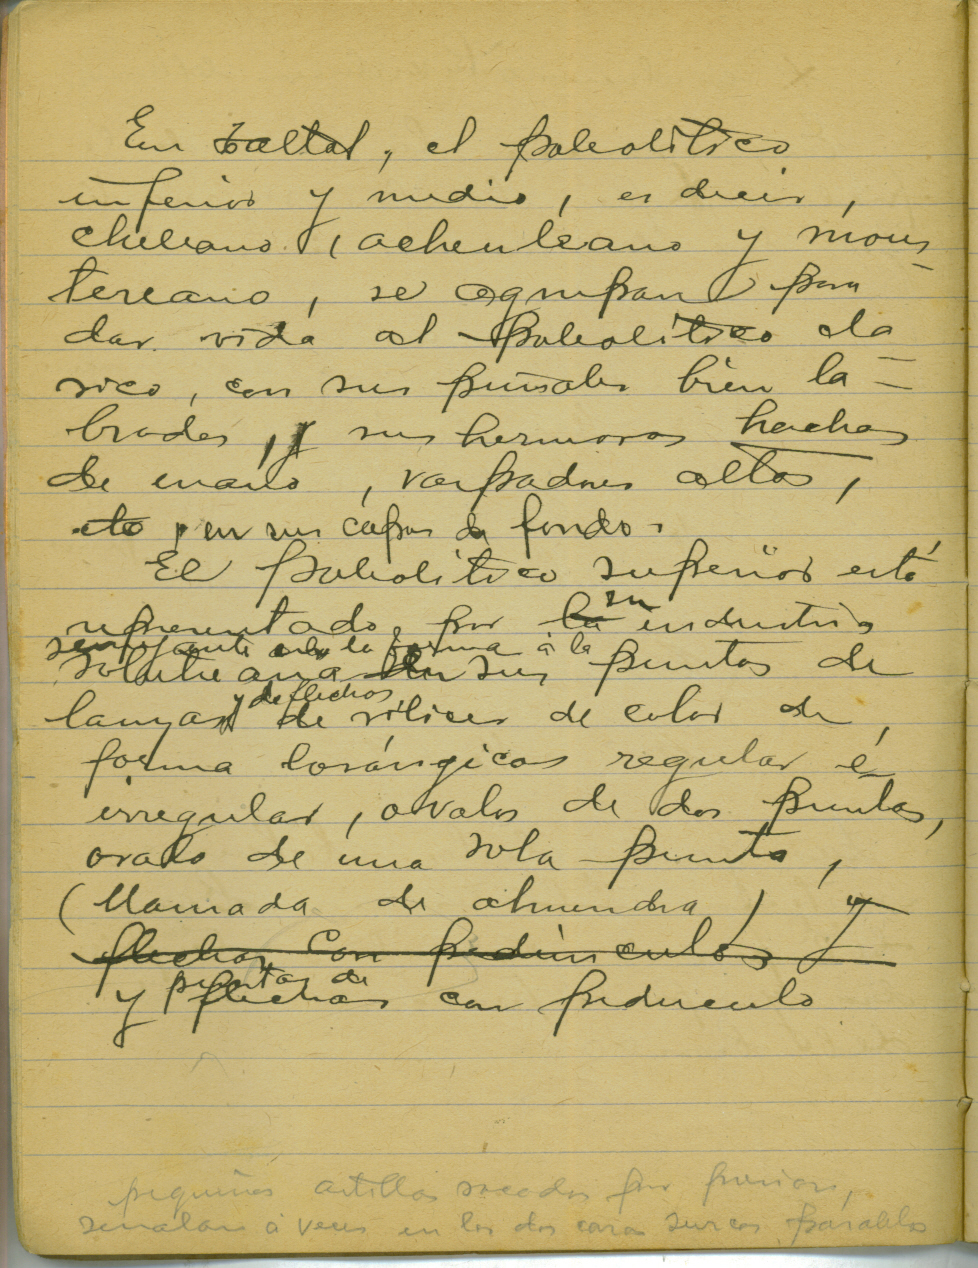 En Taltal, el paleolítico
inferior y medio, es decir,
cheleano, acheuleano y mous
tereano, se agrupan para
dar vida al paleolítico cla
sico, con sus puñales bien la-
brados, y sus hermosas hachas
de mano, raspadores altos,
etc, en sus capas de fondo.
El paleolítico superior está
representado, por la su industria
semejante en la forma à la
solutreana en sus puntas de
lanzas y de flechas de sílices de color de
forma losángicas regular é
irregular, ovalos de dos puntas,
ovalo de una sola punta,
(llamada de almendra) y
flechas con pedúnculos
y puntas de flechas con pedunculo
pequeñas astillas sacadas por presion,
señalan à veces en las dos caras surcos paralelos